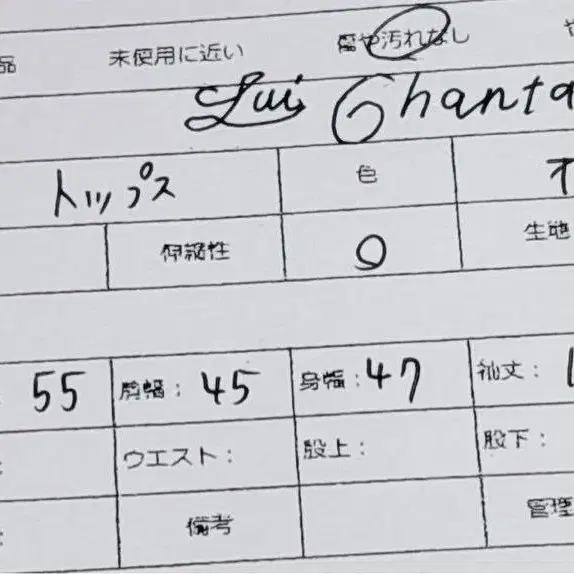 品 未使用に近い 傷や汚れなし
Lui Chanta
トップス 色
伸縮性 〇 生地
55 肩幅： 45 身幅： 47 袖丈：
： ウエスト： 股上： 股下：
： 備考 管理